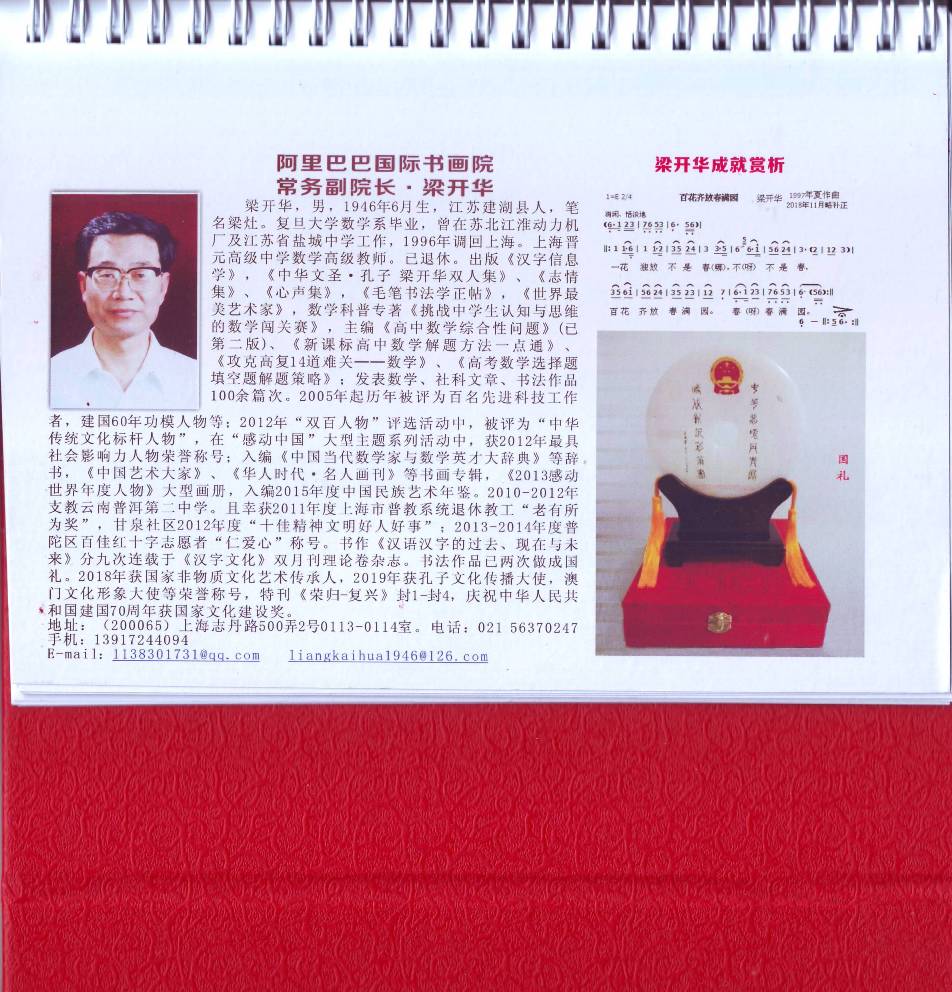 阿里巴巴国际书画院
常务副院长·梁开华
梁开华，男，1946年6月生，江苏建湖县人，笔
名梁灶。复旦大学数学系毕业，曾在苏北江淮动力机
厂及江苏省盐城中学工作，1996年调回上海。上海晋
元高级中学数学高级教师。已退休。出版《汉字信息
学》，《中华文圣·孔子 梁开华双人集》、《志情
集》、《心声集》，《毛笔书法学正帖》，《世界最
美艺术家》，数学科普专著《挑战中学生认知与思维
的数学闯关赛》，主编《高中数学综合性问题》(已
第二版)、《新课标高中数学解题方法一点通》、
《攻克高复14道难关——数学》、《高考数学选择题
填空题解题策略》；发表数学、社科文章、书法作品
100余篇次。2005年起历年被评为百名先进科技工作
者，建国60年功模人物等；2012年“双百人物”评选活动中，被评为“中华
传统文化标杆人物”，在“感动中国”大型主题系列活动中，获2012年最具
社会影响力人物荣誉称号；入编《中国当代数学家与数学英才大辞典》等辞
书，《中国艺术大家》、《华人时代·名人画刊》等书画专辑，《2013感动
世界年度人物》大型画册，入编2015年度中国民族艺术年鉴。2010-2012年
支教云南普洱第二中学。且幸获2011年度上海市普教系统退休教工“老有所
为奖”，甘泉社区2012年度“十佳精神文明好人好事”；2013-2014年度普
陀区百佳红十字志愿者“仁爱心”称号。书作《汉语汉字的过去、现在与未
来》分九次连载于《汉字文化》双月刊理论卷杂志。书法作品已两次做成国
礼。2018年获国家非物质文化艺术传承人，2019年获孔子文化传播大使，澳
门文化形象大使等荣誉称号，特刊《荣归-复兴》封1-封4，庆祝中华人民共
和国建国70周年获国家文化建设奖。
地址：（200065）上海志丹路500弄2号0113-0114室。电话：021 56370247
手机：13917244094
E-mail：1138301731@qq.com liangkaihua1946@126.com
梁开华成就赏析
1=E 2/4 百花齐放春满园 梁开华 1997年夏作曲
2018年11月略补正
一花 独放 不是 春(哪)，不(呀) 不是 春，
百花 齐放 春满 园。 春(呀)春满 园。
国
礼